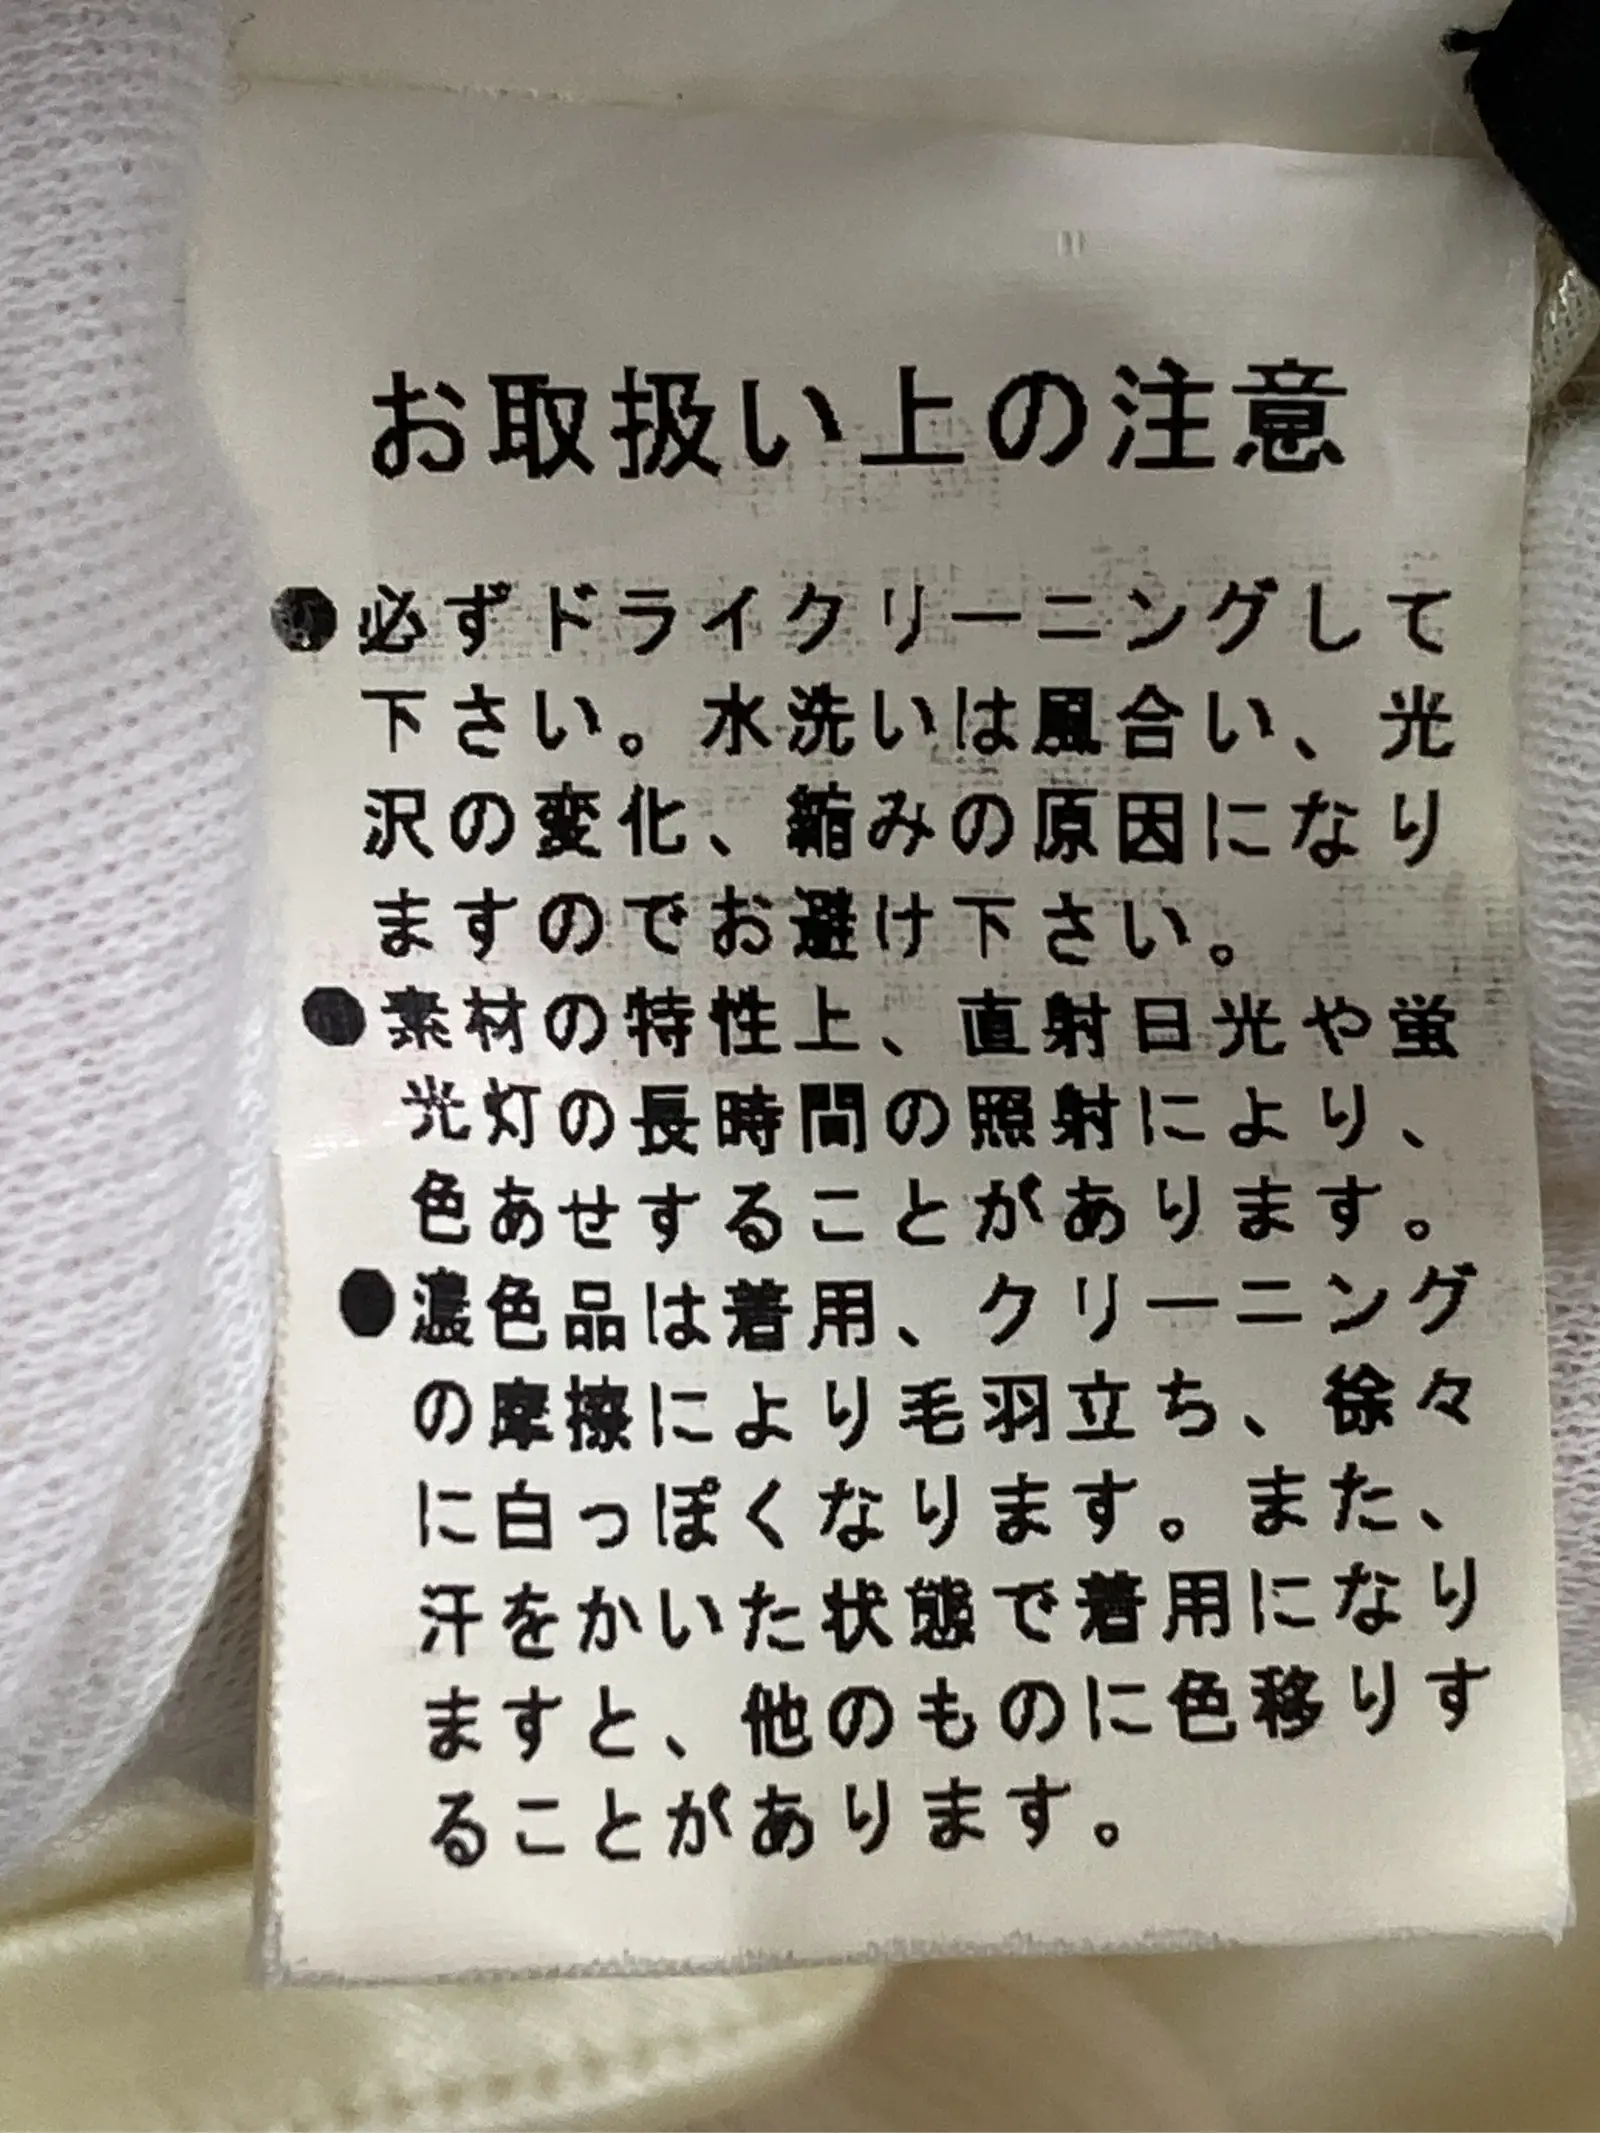 お取扱い上の注意
●必ずドライクリーニングして
下さい。水洗いは風合い、光
沢の変化、縮みの原因になり
ますのでお避け下さい。
●素材の特性上、直射日光や蛍
光灯の長時間の照射により、
色あせすることがあります。
●濃色品は着用、クリーニング
の摩擦により毛羽立ち、徐々
に白っぽくなります。また、
汗をかいた状態で着用になり
ますと、他のものに色移りす
ることがあります。